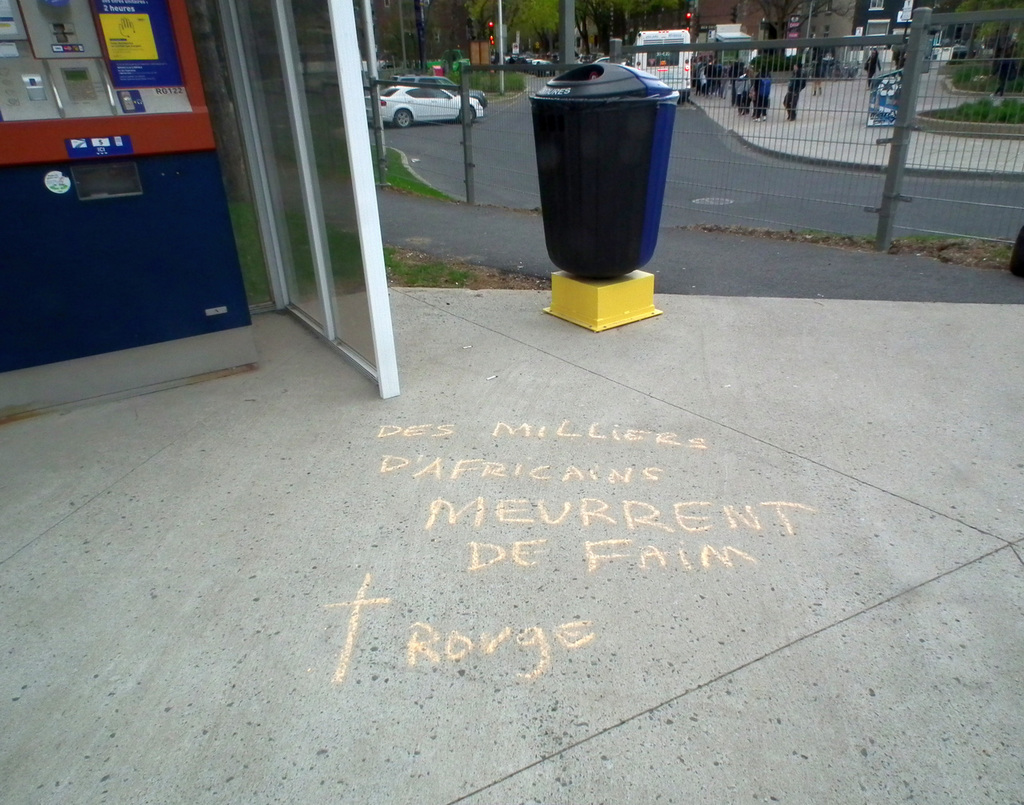 2 heures
R0122
ICI
DES MILLIERS
D'AFRICAINS
MEURRENT
DE FAIM
† Rouge